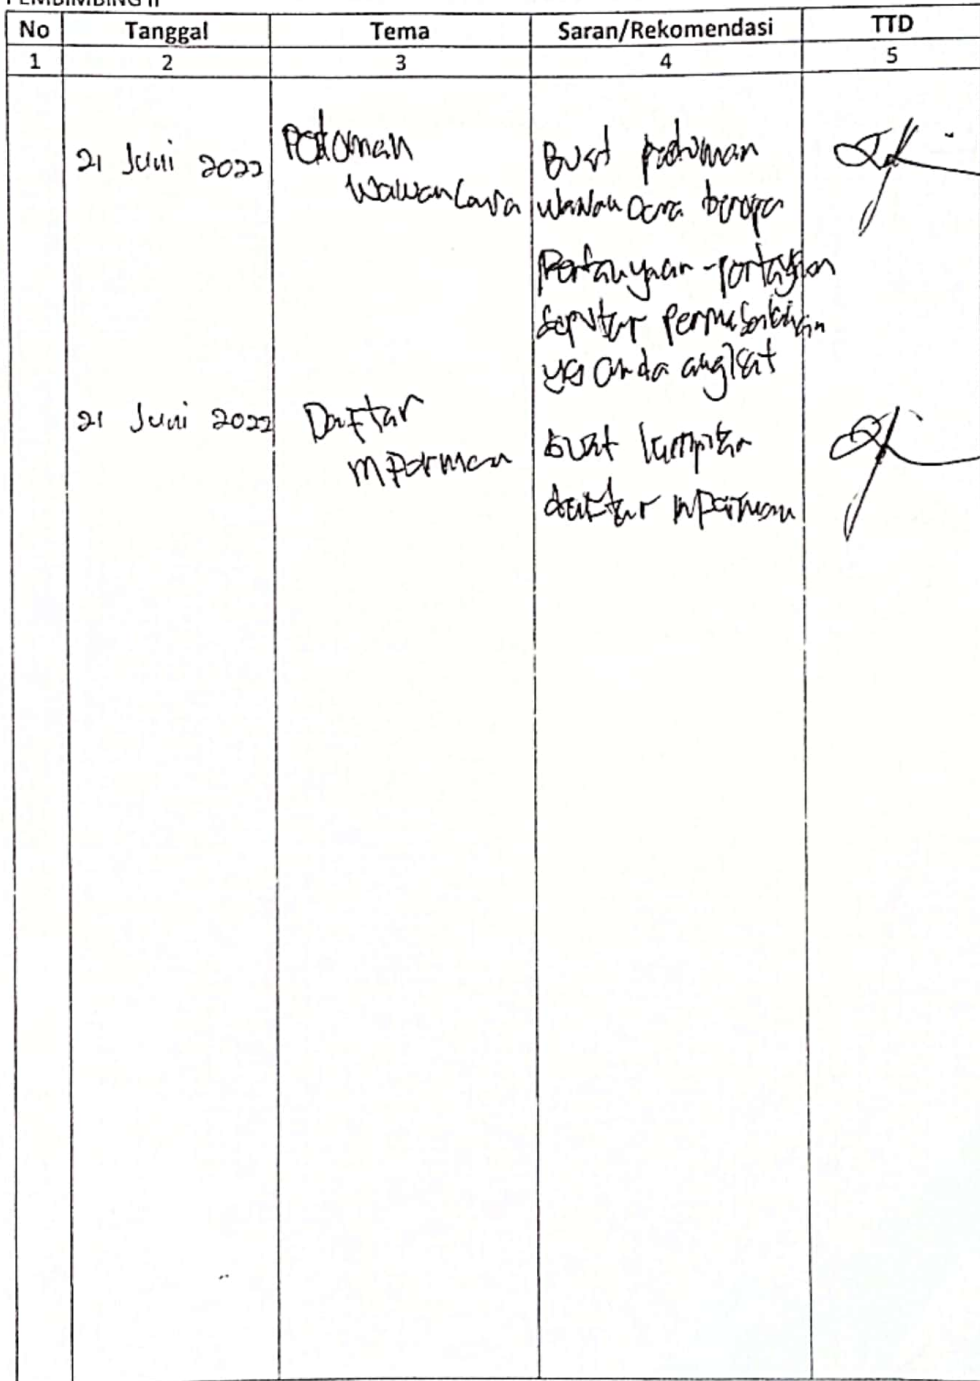 PEMBIMBING II
No Tanggal Tema Saran/Rekomendasi TTD
1 2 3 4 5
21 Juni 2022 Pedoman Buat pedoman
Wawancara wawancara berupa
Pertanyaan-pertanyaan
seputar permasalahan
yg anda angkat
21 Juni 2022 Daftar buat lampiran
informan daftar informan